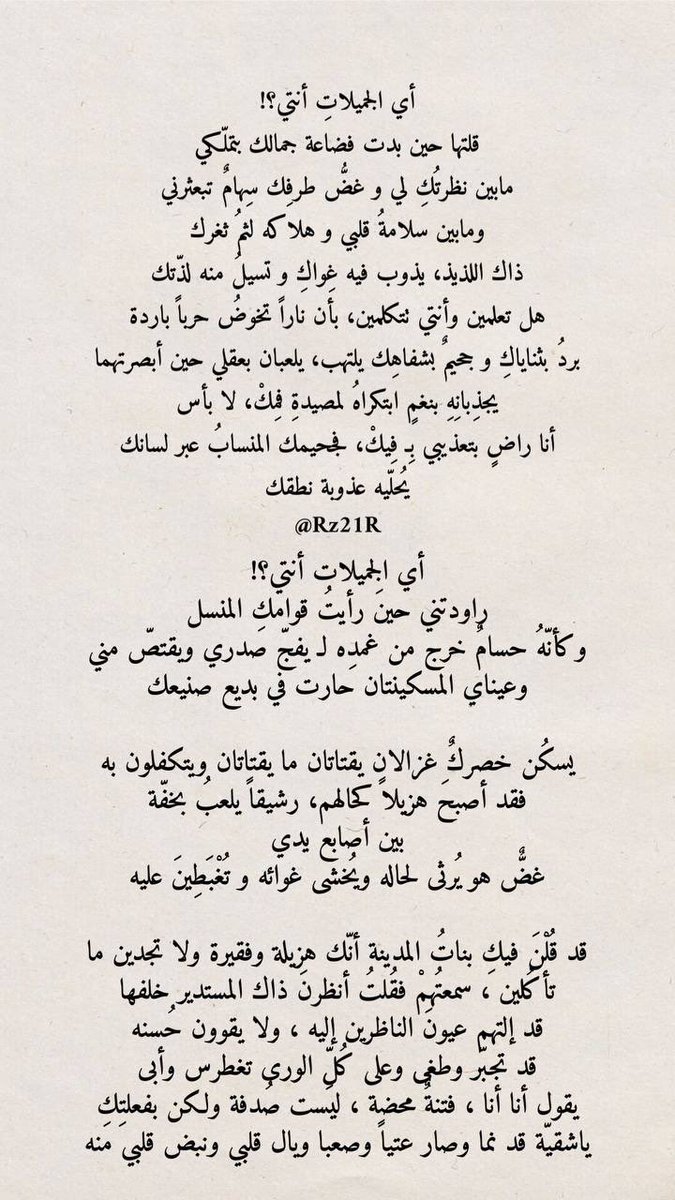 أي الجميلاتِ أنتي؟!
قلتها حين بدت فضاعة جمالك بتملّكي
مابين نظرتُكِ لي و غضُّ طرفِك سِهامٌ تبعثرني
ومابين سلامةُ قلبي و هلاكه لثمُ ثغرك
ذاك اللذيذ، يذوب فيه غِواكِ و تسيلُ منه لذّتك
هل تعلمين وأنتي تتكلمين، بأن ناراً تخوضُ حرباً باردة
بردُ بثناياكِ و جحيمٌ بشفاهِك يلتهب، يلعبان بعقلي حين أبصرتهما
يجذِبانِهِ بنغمٍ ابتكراهُ لمصيدةِ فِمكْ، لا بأس
أنا راضٍ بتعذيبي بِـ فِيكْ، فجحيمك المنسابُ عبر لسانك
يُحلّيه عذوبة نطقك
@Rz21R
أي الجميلاتِ أنتي؟!
راودتني حينَ رأيتُ قوامكِ المنسل
وكأنّهُ حسامٌ خرج من غمدِه لـ يفجّ صدري ويقتصّ مني
وعيناي المسكينتان حارت في بديع صنيعك
يسكُن خصركٌ غزالانِ يقتاتان ما يقتاتان ويتكفلون به
فقد أصبحَ هزيلاً كحالهم، رشيقاً يلعبُ بخفّة
بين أصابع يدي
غضٌّ هو يُرثى لحاله ويُخشى غوائه و تُغْبَطِينَ عليه
قد قُلْنَ فيكِ بناتُ المدينة أنّك هزيلة وفقيرة ولا تجدين ما
تأكُلين ، سمعتُهِمْ فقُلتُ أنظرنَ ذاك المستدير خلفها
قد إلتهم عيونَ الناظرين إليه ، ولا يقوون حُسنه
قد تجبّر وطغى وعلى كُلِّ الورى تغطرس وأبى
يقول أنا أنا ، فتنةٌ محضة ، ليست صُدفة ولكن بفعلتِكِ
ياشقيّة قد نما وصار عتياً وصعبا ويال قلبي ونبض قلبي منه